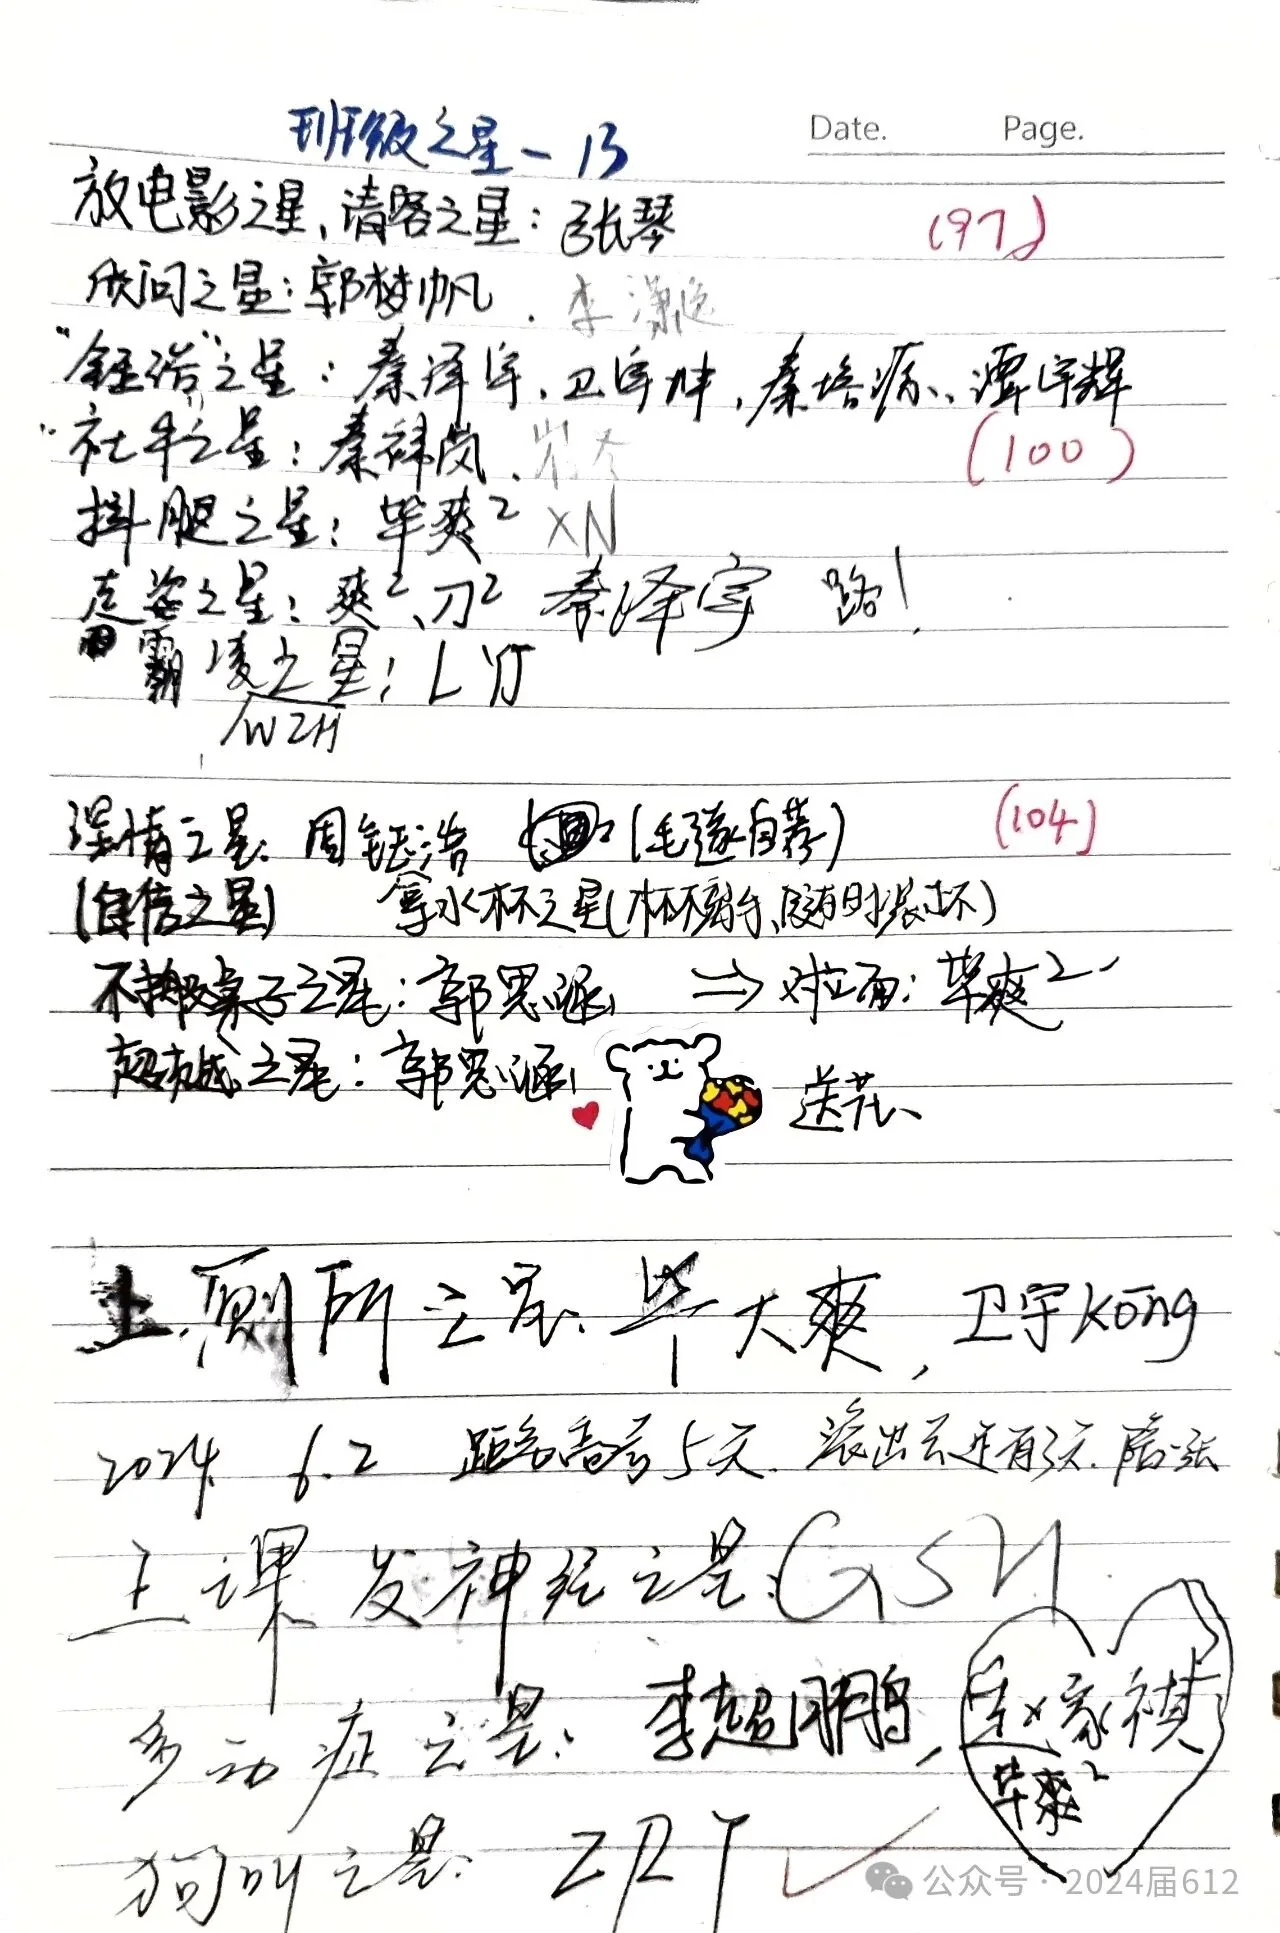 Date. Page.
班级之星-13
放电影之星、请客之星：张琴
(97)
欣问之星：郭梦帆、李潇逸
"金话"之星：秦泽宇、卫宇坤，秦培源、谭宇辉
"社牛之星：秦祎岚、
(100)
抖腿之星：毕爽² XN
走姿之星：爽²、刀² 秦泽宇 路！
霸凌之星：LYJ
WZH
深情之星：周钰浩 (毛遂自荐)
(104)
(自信之星) 拿水杯之星(杯不离手、随时装杯)
不挪桌子之星：郭思涵 ⇒ 对立面：毕爽²
超有城之星：郭思涵
送花、
上厕所之星：毕大爽，卫宇kōng
2024 6.2 距离高考5天. 滚出去还有3天.
上课发神经之星：GSH
多动症之星：李超鹏，赵家祺
毕爽²
狗叫之星：ZRT ✓
公众号·2024届612